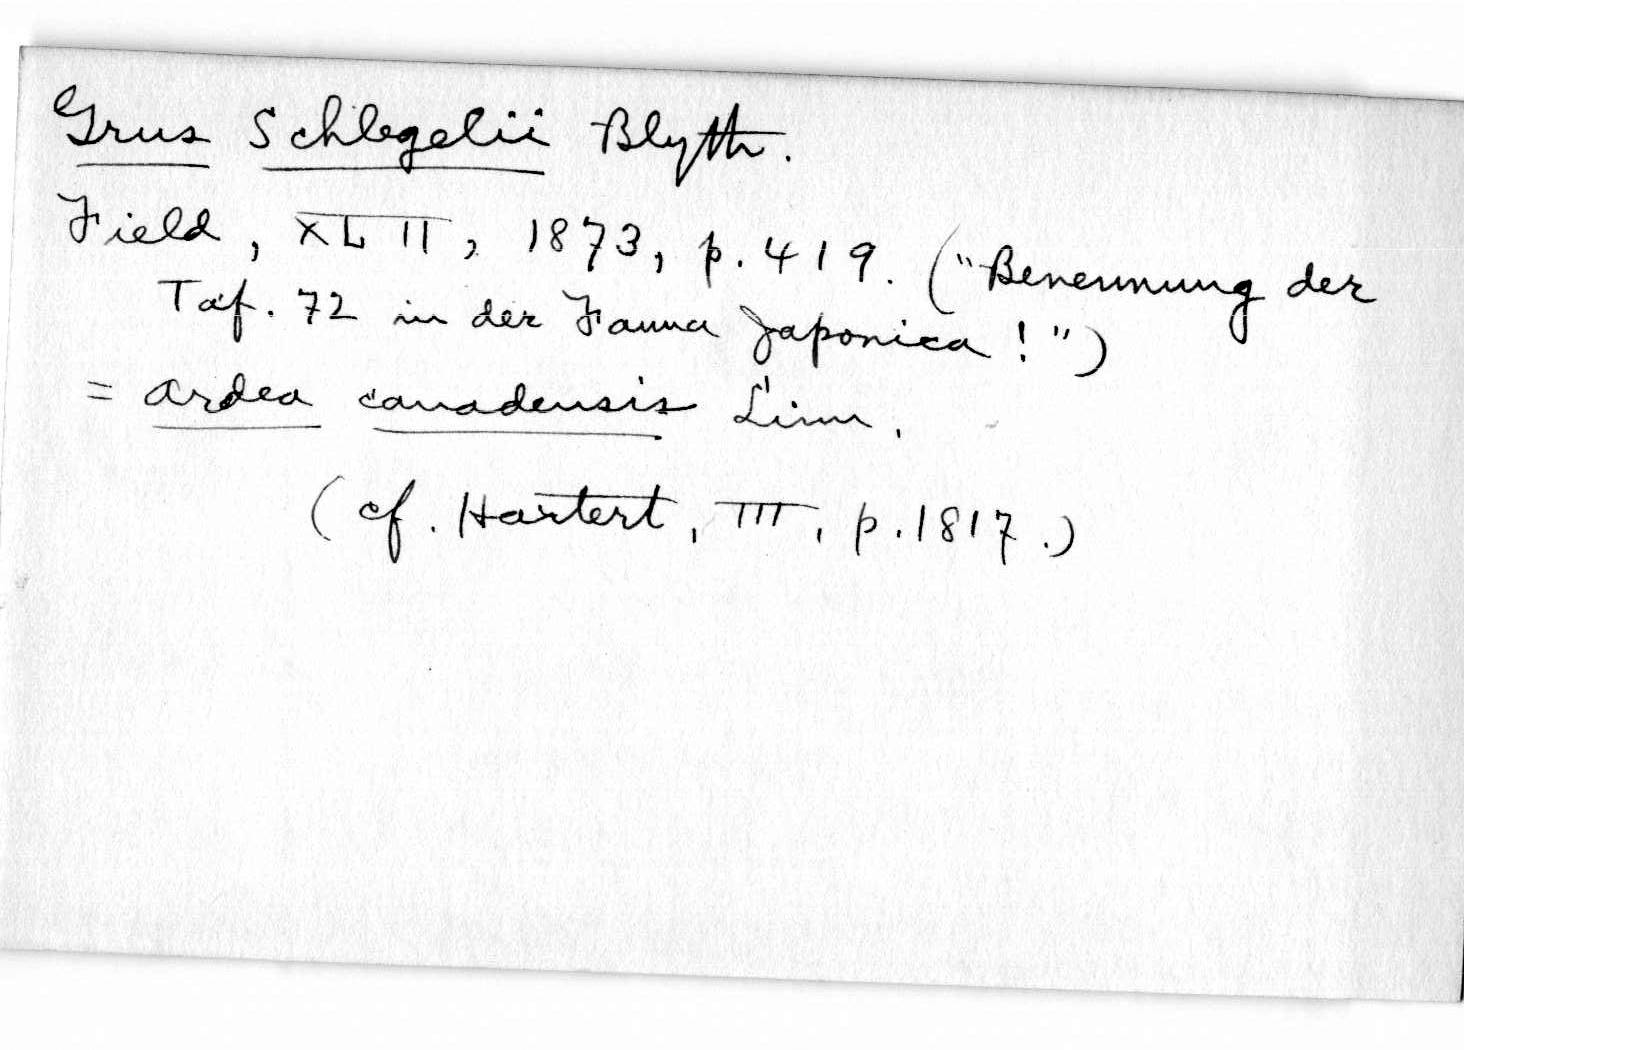 Grus Schlegelii Blyth.
Field, XLII, 1873, p. 419. ("Benennung der
Taf. 72 in der Fauna Japonica!")
= Ardea canadensis Linn.
(cf. Hartert, III, p. 1817.)